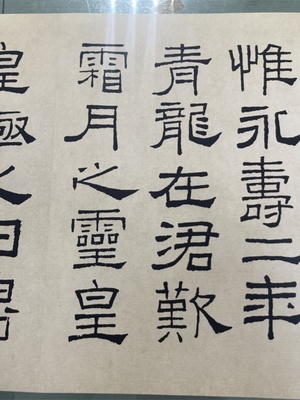 惟永壽二年
青龍在涒歎
霜月之靈皇
皇極之日